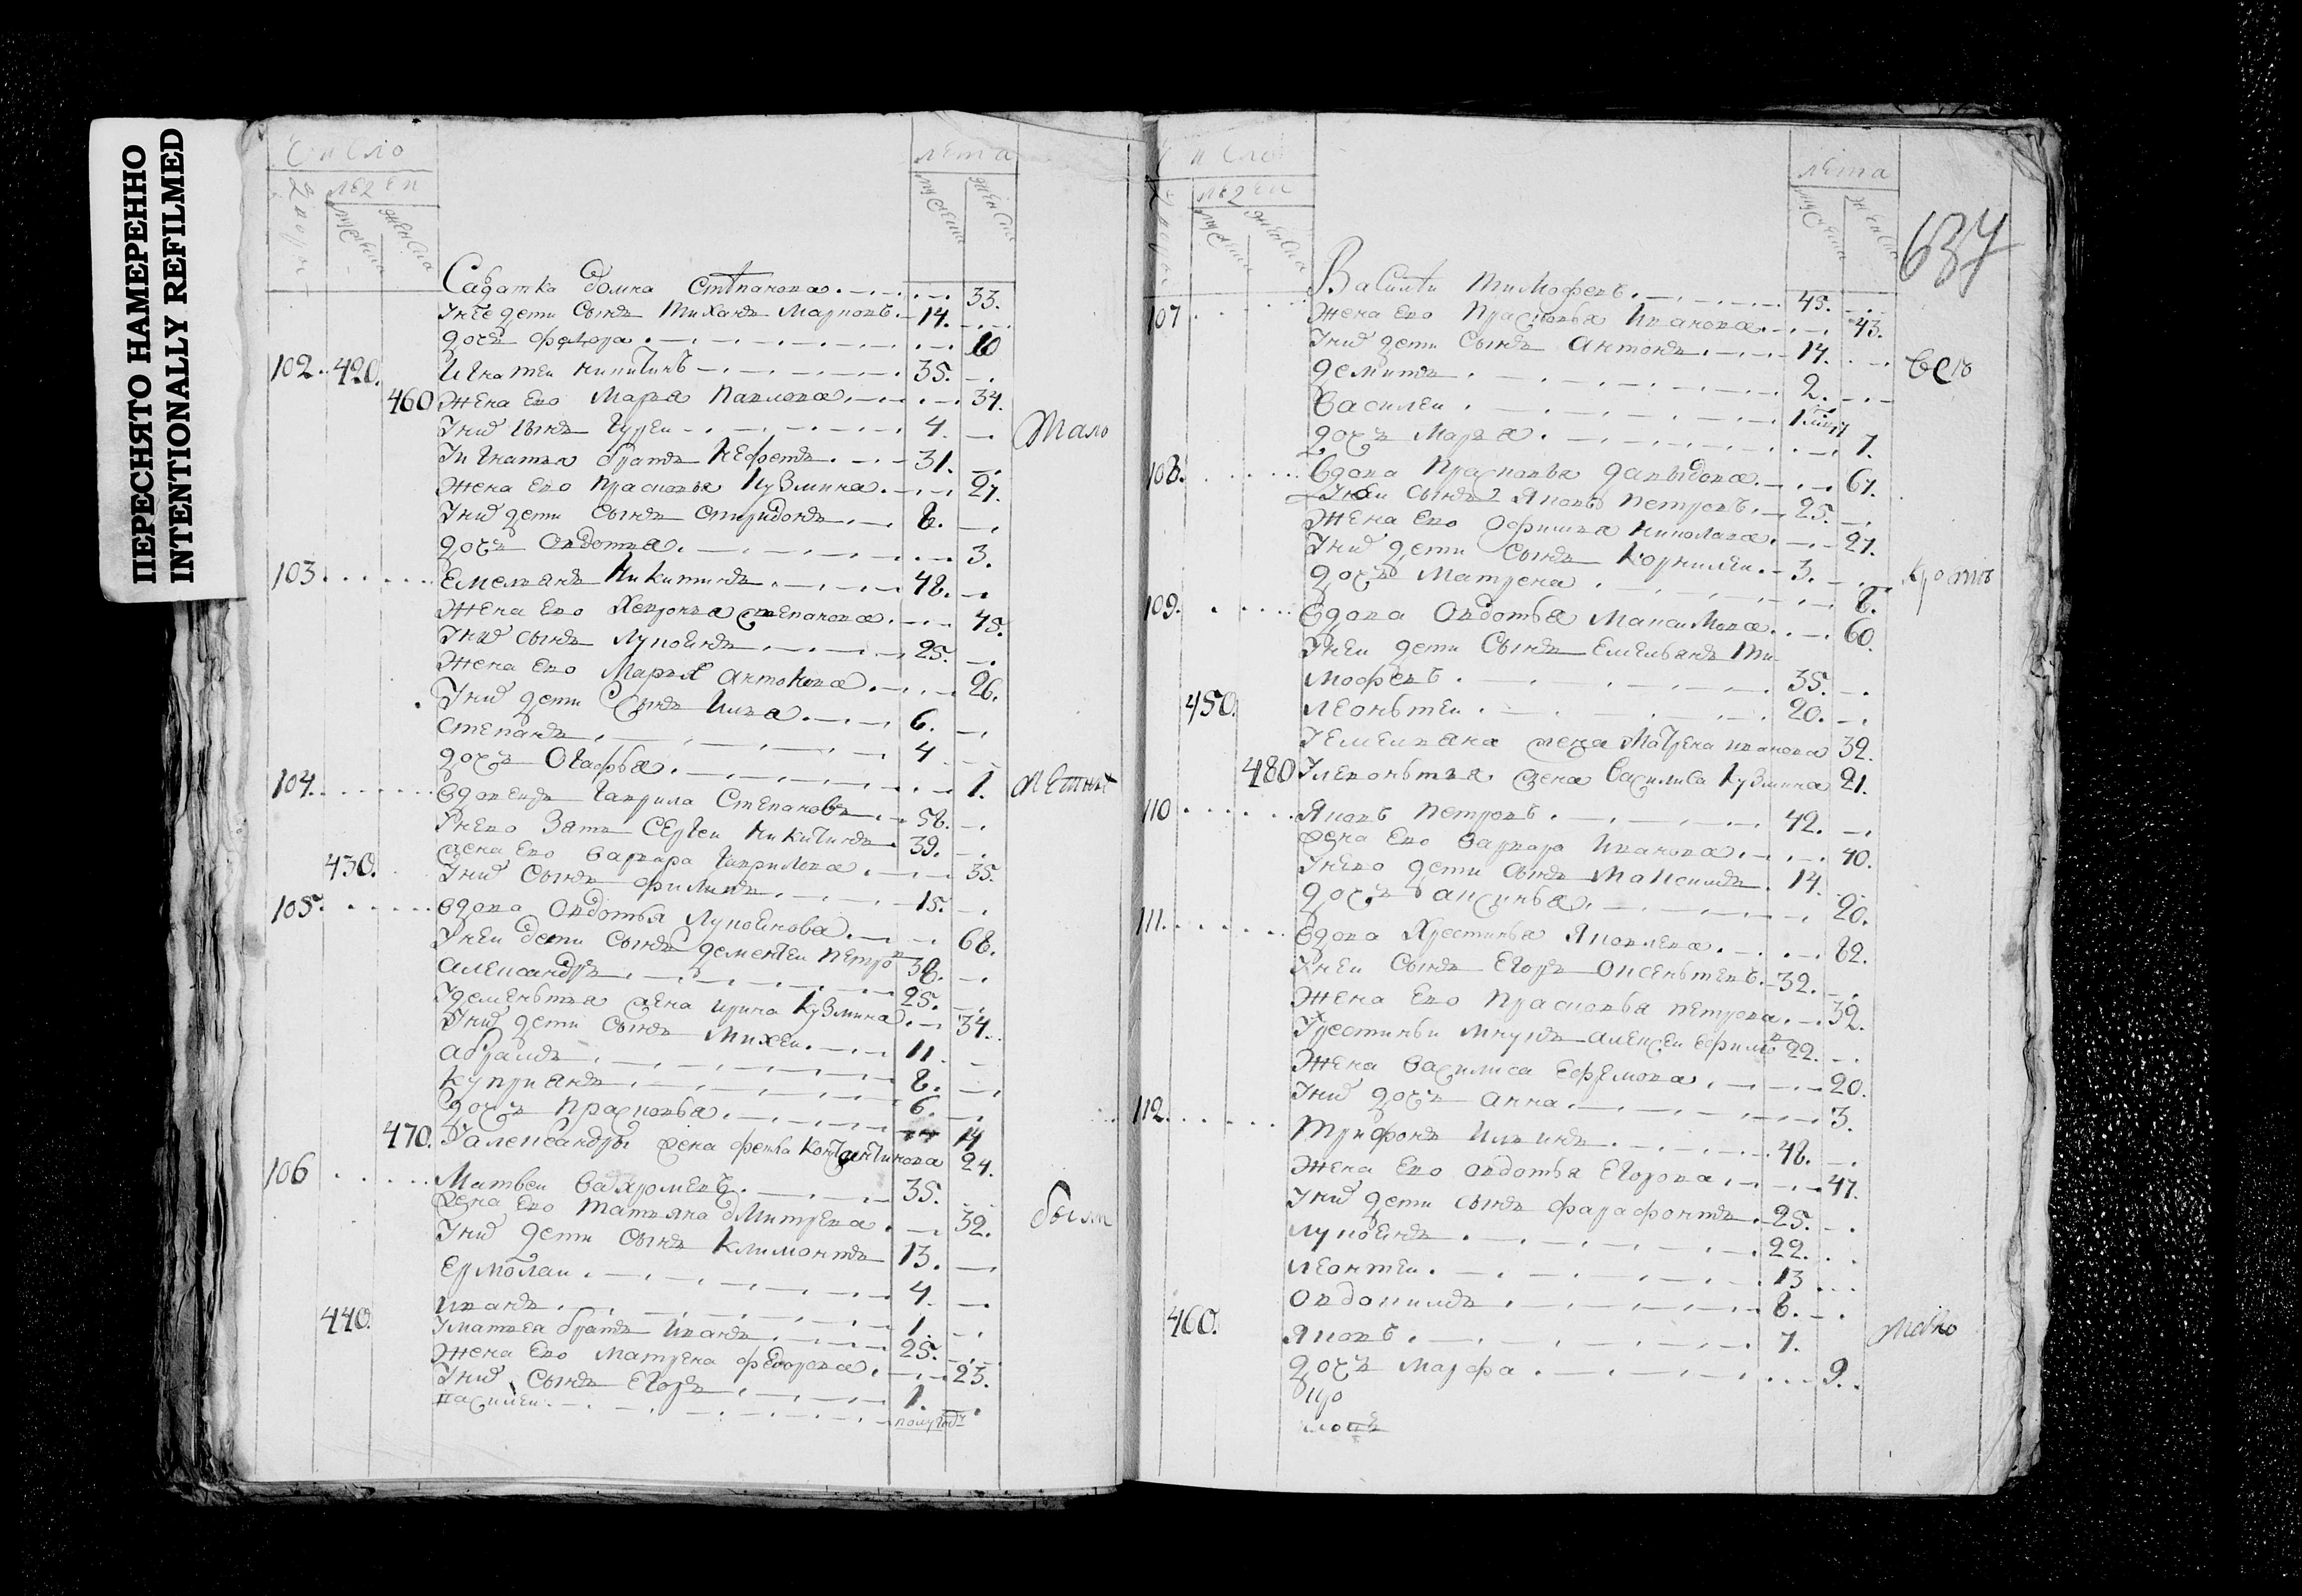 ПЕРЕСНЯТО НАМЕРЕННО
INTENTIONALLY REFILMED
Число
лета
Салдатка домна степанова 33.
У нее дети сынъ Тиханъ Марковъ 14.
дочь федора 10
102 420. Игнатеи никитинъ 35.
460 жена ево Марья Павлова 34.
У них сынъ Гуреи 4.
У игнатья братъ Нефедъ 31.
жена ево прасковья кузмина 27.
У них дети сынъ спиридонъ 8.
дочь овдотья 3.
103. Емельянъ Никитинъ 48.
жена ево степанова 45.
У них сынъ лупоянъ 25.
жена ево Марья антонова 26.
У них дети сынъ илья 6.
степанъ 4
дочь огафья 1.
104. вдовецъ гаврила степановъ 58.
У нево зять сергеи никитинъ 39.
жена ево варвара гаврилова 35.
430. У них сынъ филипъ 15.
105. вдова овдотья лупоянова 68.
У неи дети сынъ дементеи петровъ 38.
александръ 25.
У дементья жена ирина кузмина 34.
У них дети сынъ михеи 11
абрамъ 8.
куприянъ 6.
дочь прасковья 14
470. У александры жена фекла константинова 24.
106 Матвеи 35.
жена ево татьяна дмитрева 32.
У них дети сынъ климонтъ 13.
ермолаи 4.
иванъ 1.
440. У матвея братъ иванъ 25.
жена ево матрена федорова 23.
У них сынъ егоръ 1.
василеи полугоду
Число
лета
637
107 Василеи тимофеевъ 45.
жена ево прасковья иванова 43.
У них дети сынъ антонъ 14.
демитъ 2.
василеи
дочь марья 7.
108. вдова прасковья давыдова 67.
У неи сынъ яковъ петровъ 25.
жена ево офимья николаева 27.
У них дети сынъ корнилеи 3.
дочь матрена 8.
109. вдова овдотья максимова 60.
У неи дети сынъ емельянъ ти
мофеевъ 35.
450. леонтеи 20.
У емельяна жена матрена иванова 32.
480 У леонтья жена василиса кузмина 21.
110 яковъ петровъ 42.
жена ево варвара иванова 40.
У нево дети сынъ максимъ 14.
дочь аксинья 20.
111. вдова хрестинья яковлева 82.
У неи сынъ егоръ оксентьевъ 32.
жена ево прасковья петрова 32.
У хрестиньи внукъ алексеи ефимовъ 22.
жена василиса ефремова 20.
У них дочь анна 3.
112. трифонъ ильинъ 48.
жена ево овдотья егорова 47.
У них дети сынъ фарафонтъ 25.
лупоянъ 22.
леонтеи 13
овдокимъ 8.
460. яковъ 7.
дочь марфа 9.